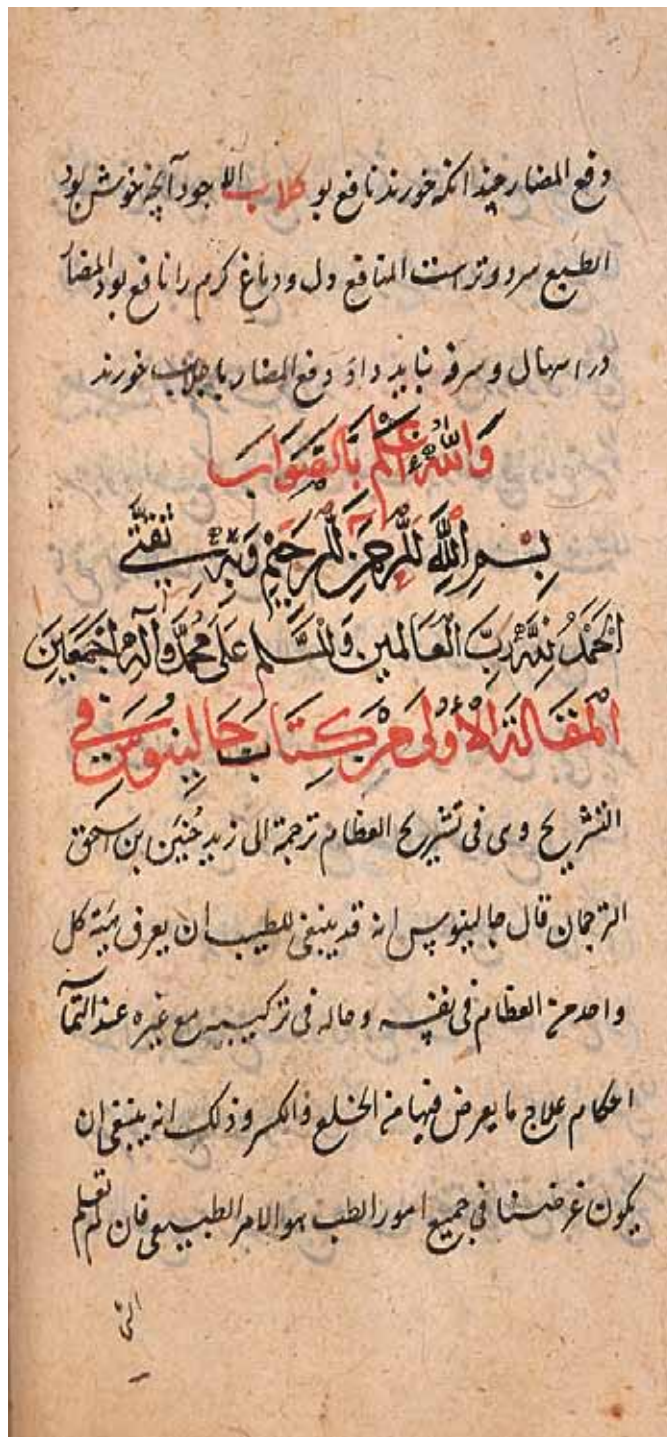 دفع المضار چندانکه خورند نافع بو کلاب الاجود آنچه خوش بود
الطبع سرد و ترست المنافع دل و دماغ کرم را نافع بود المضار
در اسهال و سرفه نباید داد دفع المضار با جلاب خورند
وَاللهُ اَعْلَم بِالصَّوَاب
بِسْمِ اللَّهِ الرَّحْمَنِ الرَّحِيمِ وَبِهِ ثِقَتِي
اَلْحَمْدُ لِلَّهِ رَبِّ الْعَالَمِين وَالسَّلَم عَلَى مُحَمَّدٍ وَآلِهِ اَجْمَعِينَ
اَلْمَقَالَة الْأُولَى مِنْ كِتَاب جَالِينُوسَ فِي
التشريح وهى فى تشريح العظام ترجمة ابى زيد حُنَين بن اسحق
الترجمان قال جالينوس انه قد ينبغى للطبيب ان يعرف هيئة كل
واحد من العظام فى نفسه وحاله فى تركيبه مع غيره عند التما
احكام علاج ما يعرض فيها من الخلع والكسر وذلك انه ينبغى ان
يكون غرضنا فى جميع امور الطب هو الامر الطبيعى فان لم تعلم